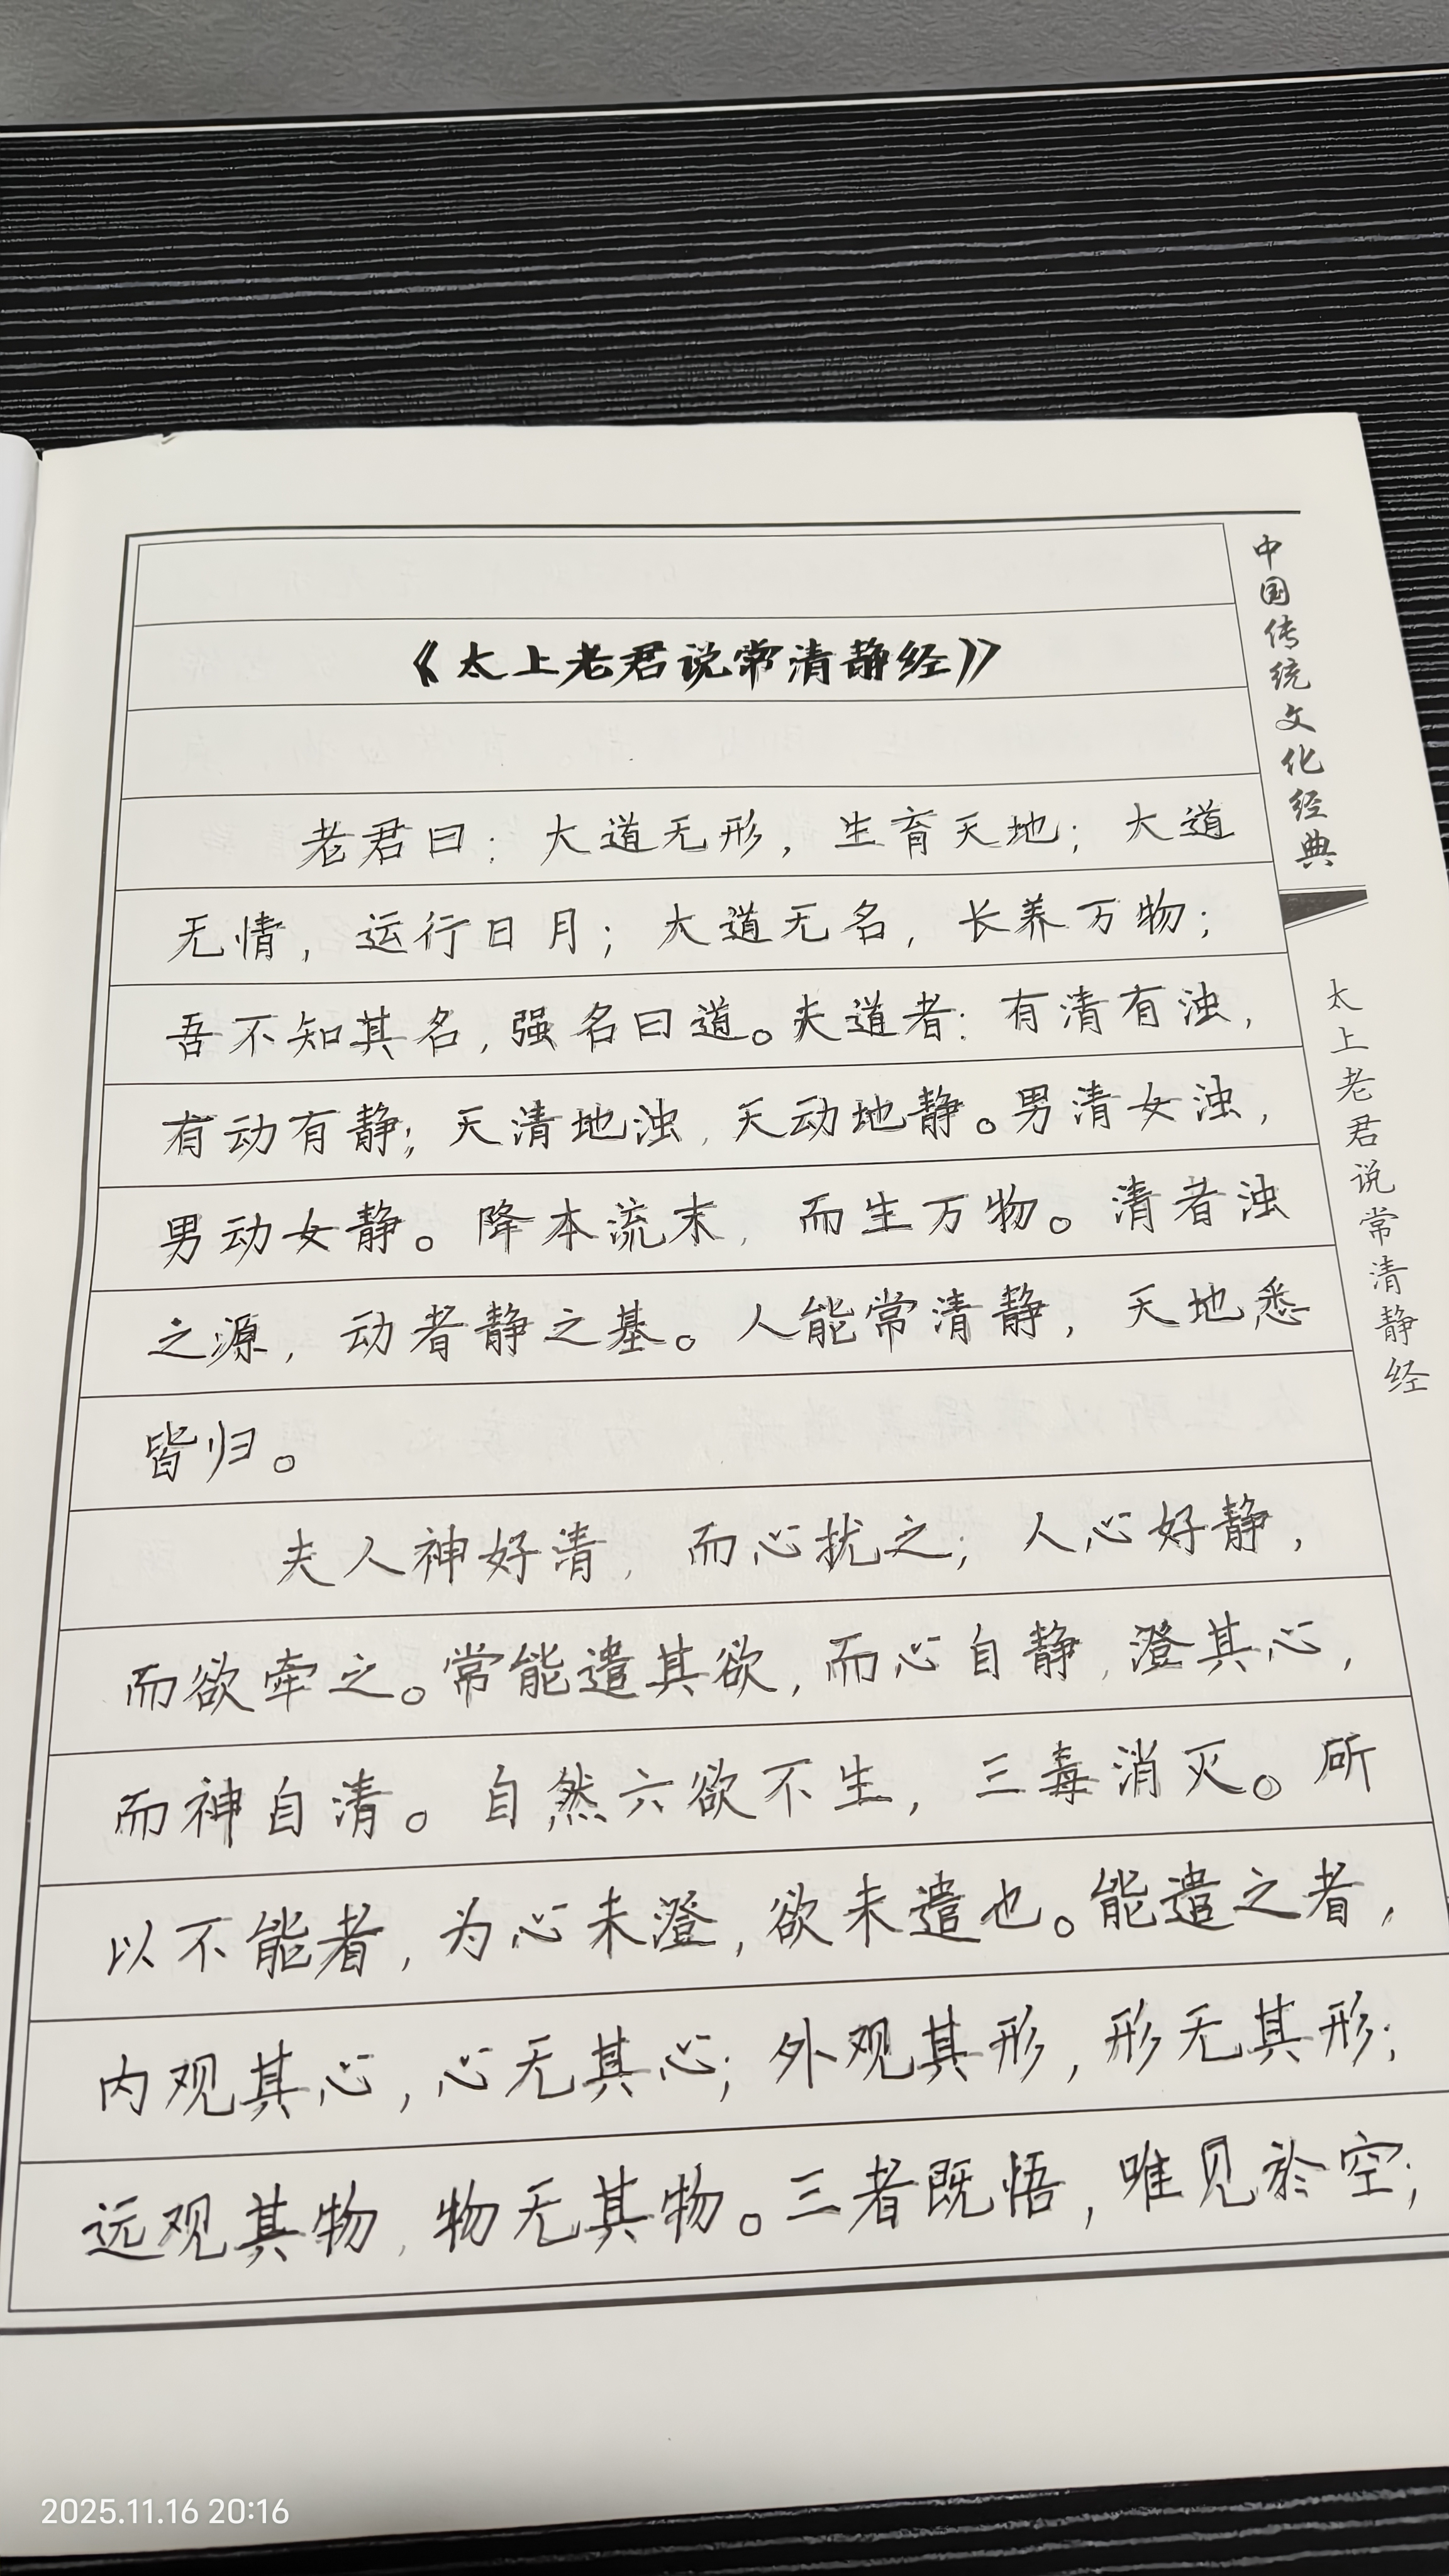 《太上老君说常清静经》
老君曰：大道无形，生育天地；大道
无情，运行日月；大道无名，长养万物；
吾不知其名，强名曰道。夫道者：有清有浊，
有动有静；天清地浊，天动地静。男清女浊，
男动女静。降本流末，而生万物。清者浊
之源，动者静之基。人能常清静，天地悉
皆归。
夫人神好清，而心扰之；人心好静，
而欲牵之。常能遣其欲，而心自静，澄其心，
而神自清。自然六欲不生，三毒消灭。所
以不能者，为心未澄，欲未遣也。能遣之者，
内观其心，心无其心；外观其形，形无其形；
远观其物，物无其物。三者既悟，唯见於空；
中国传统文化经典
太上老君说常清静经
2025.11.16 20:16